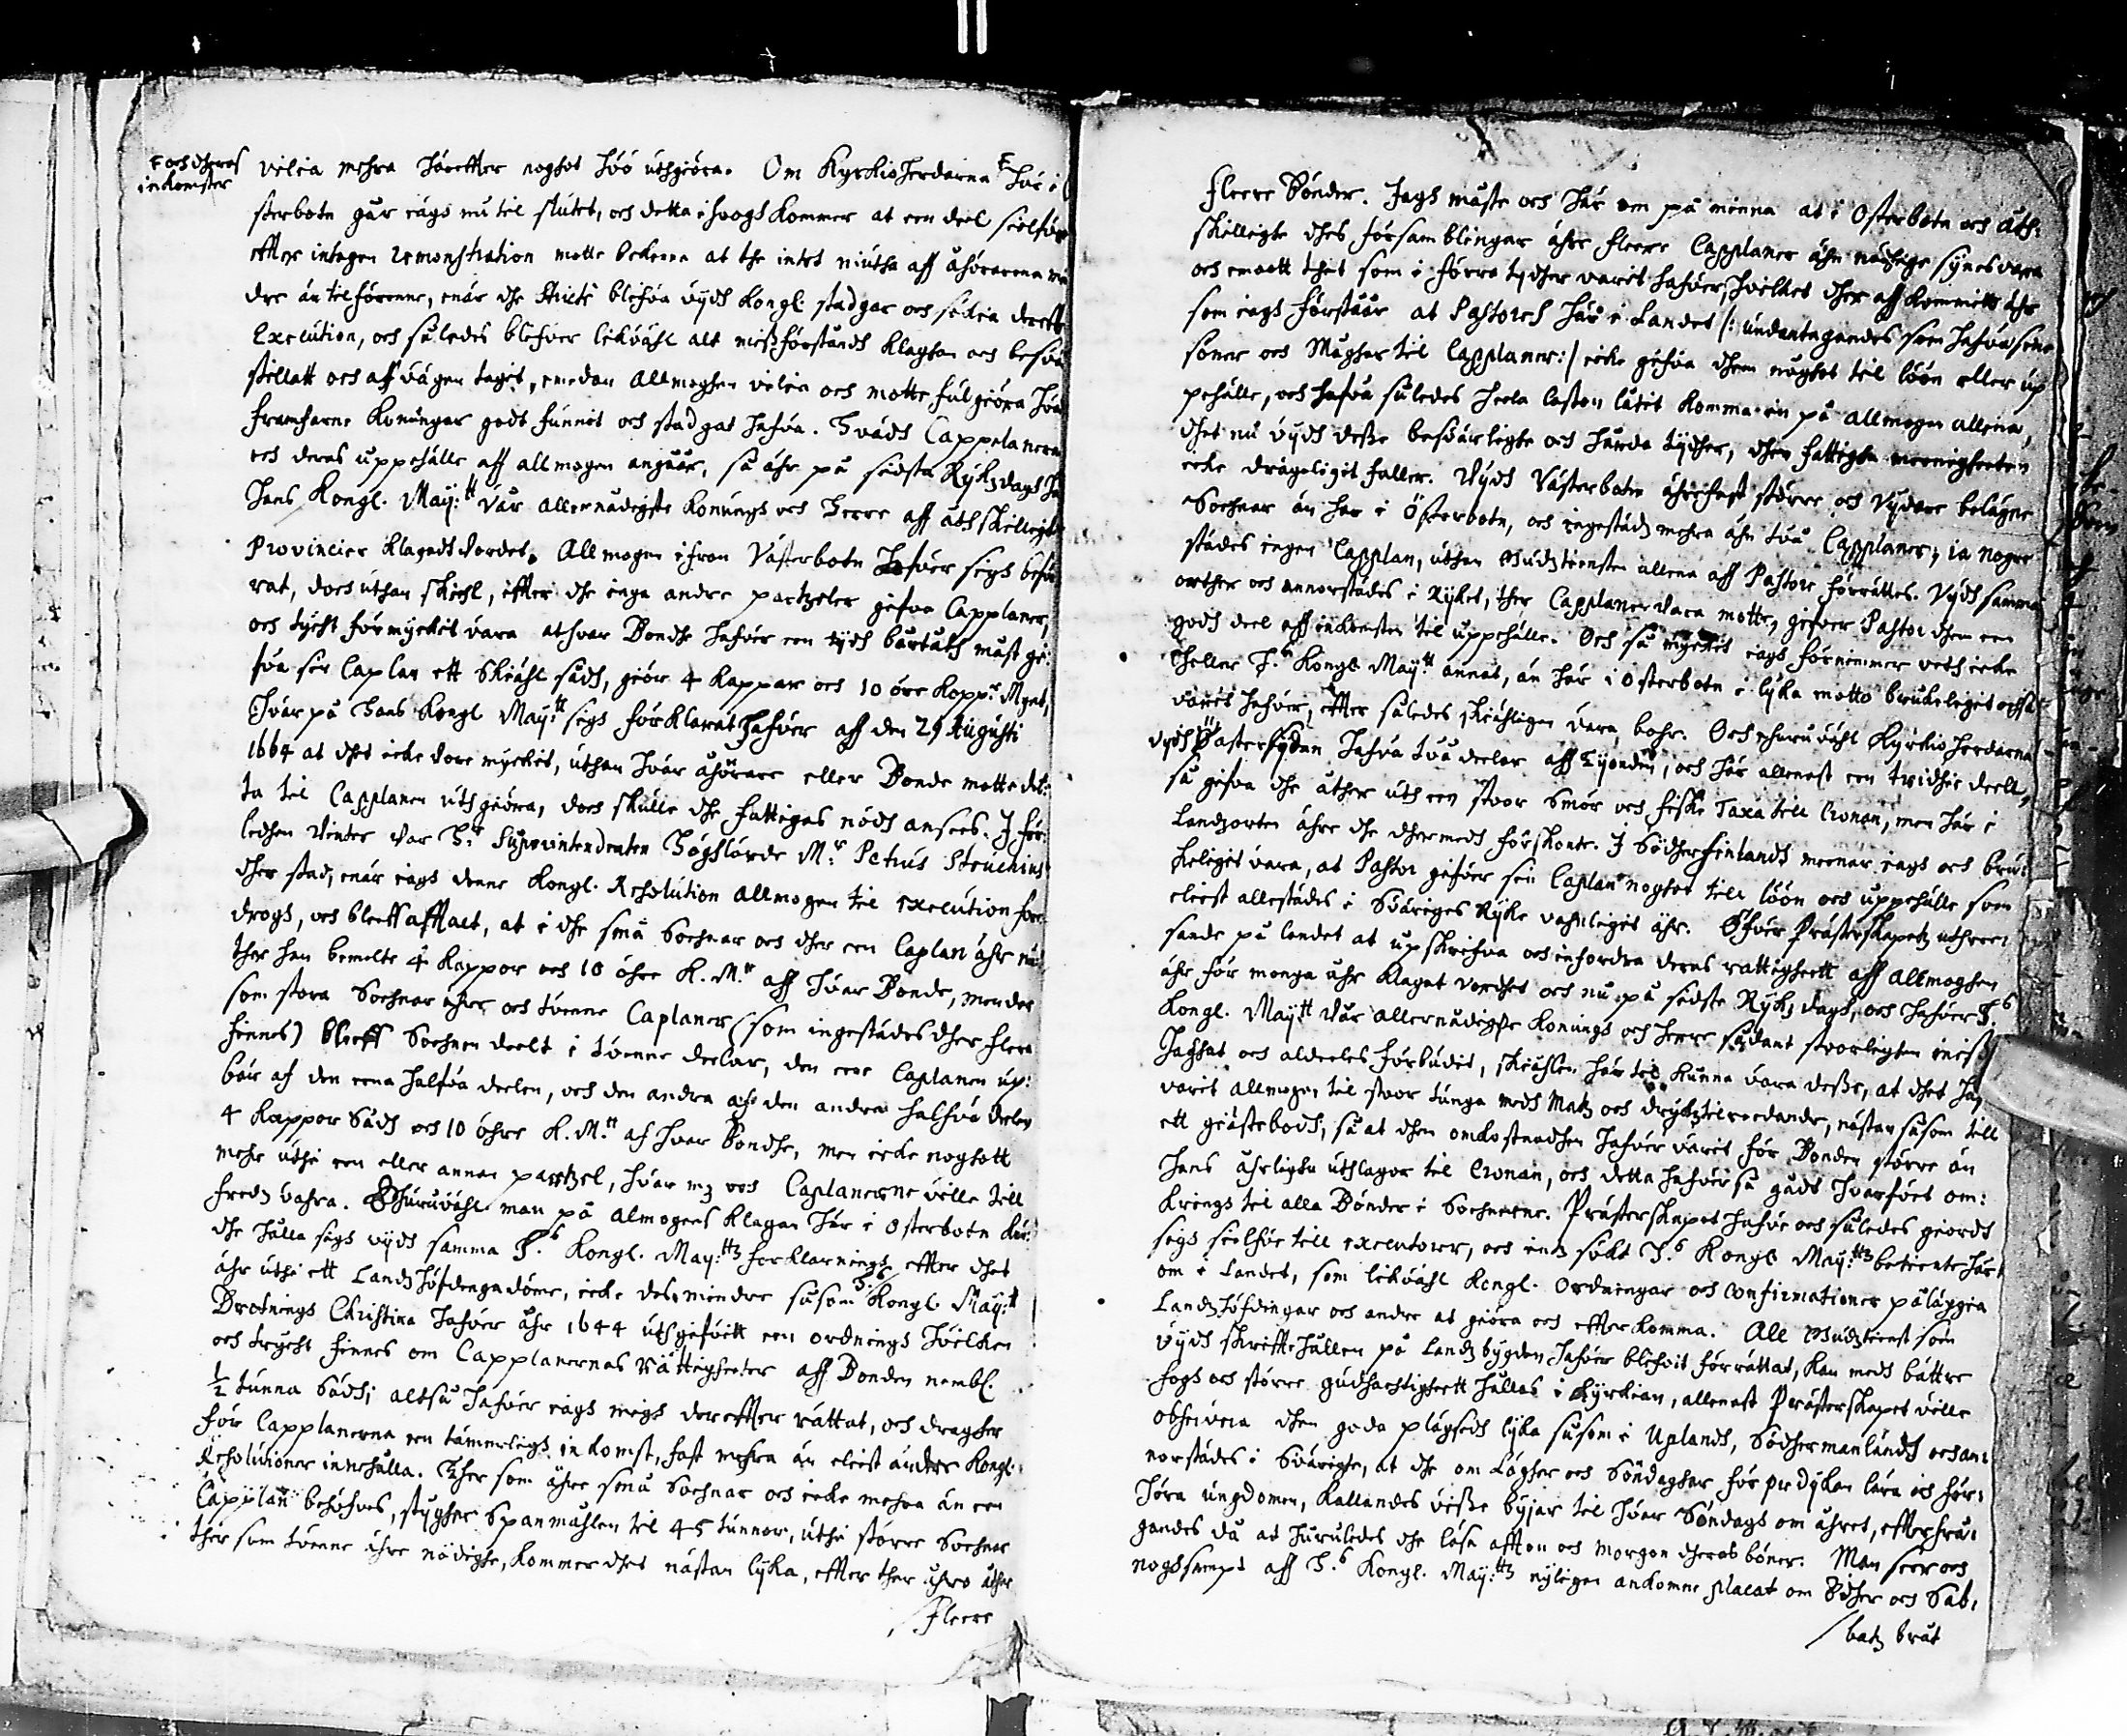 F och theras
inkomster
vilia mehra häreffter noghot höö uthgiöra. Om Kyrkioherdarna F här i
sterbotn går iagh nu til slutet, och detta ihoogh kommer at een deel sielfve
effter intagen remonstration motte bekenna at the intet niutha aff åhörarena min
dre än tilförenne, enär dhe stricte blifva vydh Kongl: stadgar och sökia der effter
Execution, och således blifver likväl alt missförståndh klaghan och besvär
stillatt och aff vägen taget, emedan Allmoghen vilia och motte fulgiöra hvad
framfarne Konungar godt funnit och stadgat hafva. Hvadh Cappelanerna
och deras uppehälle aff allmogen angåår, så ähr på sidsta Ryksdagh för
Hans Kongl. May:tt vår allernådigste Konungh och Herre aff åthskillighe
Provincier klagadt vordet. Allmogen ifron Västerbotn hafver sigh besvä
rat, doch uthan skiähl, effter dhe inga andra partzeler gifva Capplaner,
och tycht förmycket vara at hvar Bondhe hafver een tydh bårtåth måst gi:
fva sin Caplan ett Skiähl sädh, giör 4 kappar och 10 öre kopp:r Mynt,
hvar på Hans Kongl May:tt sigh förklarat hafver aff den 29 Augusti
1664 at dhet icke vore mycket, uthan hvar åhörare eller Bonde motte det:
ta til Capplanen uthgiöra, doch skulle dhe fattigas nödh ansees. I för:
ledhen vinter var H:r Superintendenten Höghlärde M:r Petrus Steuchius
dher stad, enär iagh denne Kongl. Resolution Allmogen til execution före
drogh, och bleeff affalt, at i dhe små Sochnar och dher een Caplan ähr niu
ther han bemelte 4 kappor och 10 öhre K. M:tt aff hvar Bonde, men der
som stora Sochnar ähre och tvenne Caplaner (som ingestädes dher flera
finnes) bleeff Sochnen deelt i tvenne deelar, den eene Caplanen up:
bär af den eena halfva deelen, och den andra af den andra halfva delen
4 kappor Sädh och 10 öhre K. M:tt af hvar Bondhe, men icke noghott
mehr uthi een eller annan partzel, hvar mz och Caplanerne ville till
fredz vahra. Ehuruväl man på Almogens klagan här i Osterbotn kun:
dhe hålla sigh vydh samma H:s Kongl. May:ttz forklarningh, effter dhet
ähr uthi ett Landzhöfdingadöme, icke desmindre såsom H:s Kongl. May:tt
Drotningh Christina hafver åhr 1644 uthgifvitt een ordningh hvilken
och trycht finnes om Capplanernas rättigheter aff Bonden nembl.
½ tunna Sädh; altså hafver iagh migh dereffter rättat, och dragher
för Capplanerna een tämmeligh inkomst, fast mehra än eliest andra Kongl:
Resolutioner innehålla. Ther som ähre små Sochnar och icke mehra än een
Capplan behöfves, stygher Spanmåhlen til 45 tunnor, uthi större Sochnar
ther som tvenne ähre nödighe, kommer dhet nästan lyka, effter ther ähre åther
/fleere
fleere Bönder. Iagh måste och här om på minna at i Osterbotn och åth:
skillighe dhes församblingar ähre fleere Capplaner ähn nödhige synes vara
och emoott thet som i förra tydher varit hafver, hvilket dher aff kommitt ähr
som iagh förståår at Pastores här i Landet /: undantagandes som hafva sine
söner och Mågher til Capplaner:/ icke gifva dhem noghot til löön eller up
pehälle, och hafva således heela lasten låtit komma in på allmogen allena,
dhet nu vydh desse besvärlighe och hårda tydher, dhen fattigha meenigheeten
icke drägeligit faller. Vydh Västerbotn ähre fast större och vydare belägne
Sochnar än här i Österbotn, och ingestädz mehra ähn två Capplaner, ia nogre
städes ingen Capplan, uthan Gudztiensten allena aff Pastore förrättes. Vydh samma
orther och annorstädes i Ryket, ther Capplaner vara motte, gifver Pastor dhem een
godh deel aff inkomsten til uppehälle. Och så mycket iagh förnimmer veth icke
heller H:s Kongl. May:tt annat, än här i Osterbotn i lyka motto brukeligit och så
varit hafver, effter således skiähligen vara bohr. Och ehuruväl Kyrkioherdarna
vydh Västersydan hafva två deelar aff Tyonden, och här allenast een tridhie deell,
så gifva dhe åther uth een stoor Smör och fiske Taxa till Cronan, men här i
Landzorten ähre dhe dhermedh förskonte. I Södherfinlandh meenar iagh och bru:
keligit vara, at Pastor gifver sin Caplan noghot till löön och uppehälle som
eliest allestädes i Sväriges Ryke vahnligit ähr. Öfver Prästerskapetz uthree:
sande på landet at upskrifva och infordra deras rattigheett aff Allmoghen
ähr för monga åhr klagat vordhet och nu på sidste Rykzdagh, och hafver H:s
Kongl. May:tt vår allernådigste Konungh och Herre sådant storligen miss
haghat och aldeeles förbudit, skiählen här til kunna vara desse, at dhet haf
varit allmogen til stoor tunga medh Matz och drycktz tilreedande, nästan såsom till
ett giästebodh, så at dhen omkostnadhen hafver varit för Bonden större än
hans åhrligha uthlagor til Cronan, och detta hafver så gådt hvarföet om:
kringh til alla Bönder i Sochnerne. Prästerskapet hafver och således giordt
sigh sielfve till executorer, och intz sökt H:s Kongl. May:ttz betiente här
om i Landet, som likväl Kongl. Ordningar och confirmationer påläggia
Landzhöfdingar och andre at giöra och efterkomma. All Gudztienst som
vydh skriffthållen på Landzbygden hafver blifvit förrättat, kan medh bättre
fogh och större gudhachtigheett hållas i Kyrkian, allenast Prästerskapet ville
observera dhen goda plägsedh lyka såsom i Uplandh, Södhermanlandh och an:
norstädes i Svärighe, at dhe om Lögher och Söndaghar för predykan lära och för:
höra ungdomen, kallandes visse byjar til hvar Söndagh om åhret, effterfrå:
gandes då at huruledes dhe läsa afton och morgon dheras böner. Man seer och
noghsampt aff H:s Kongl. May:ttz nyligen ankomne placat om Edher och Sab:
/batz brut